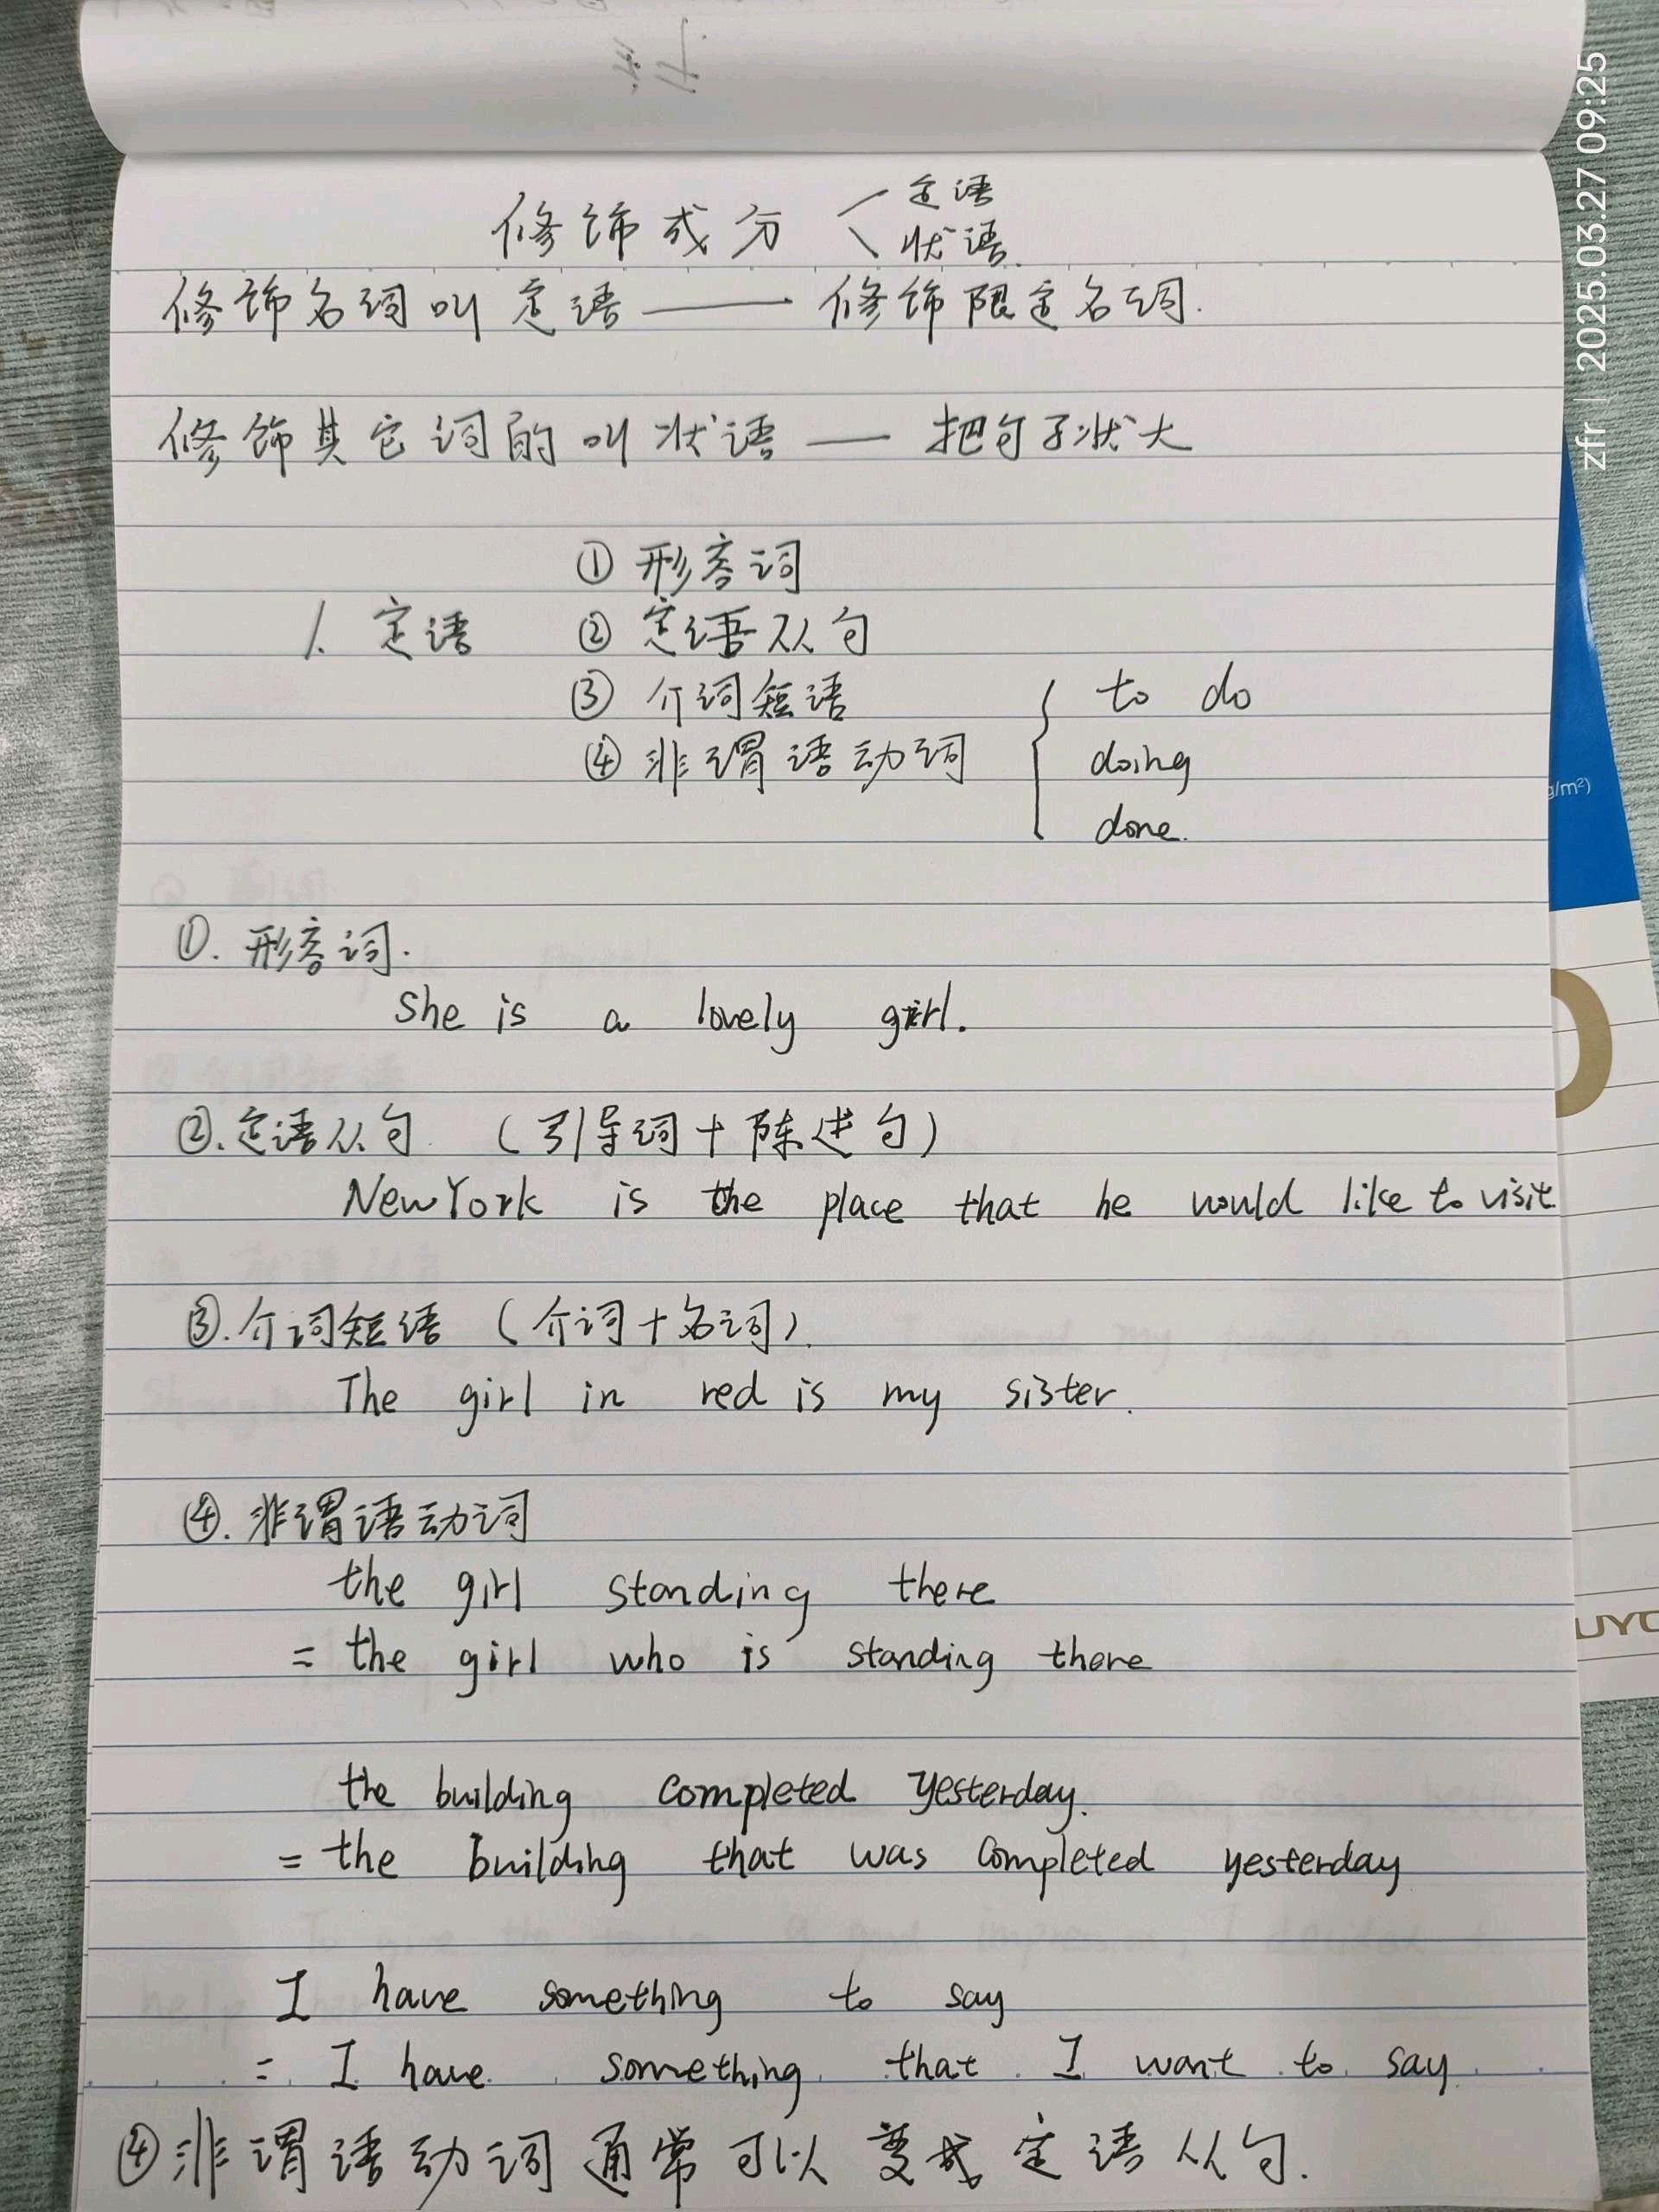 修饰成分 定语
状语.
修饰名词叫定语 —— 修饰限定名词.
修饰其它词的叫状语 — 把句子状大
① 形容词
1. 定语 ② 定语从句
③ 介词短语 { to do
④ 非谓语动词 doing
done.
①. 形容词.
She is a lovely girl.
②. 定语从句 (引导词+陈述句)
New York is the place that he would like to visit
③. 介词短语 (介词+名词).
The girl in red is my sister.
④. 非谓语动词
the girl standing there
= the girl who is standing there
the building completed yesterday.
= the building that was completed yesterday
I have something to say
= I have something that I want to say
④非谓语动词通常可以变成定语从句.
zfr | 2025.03.27 09:25
g/m²)
UYO